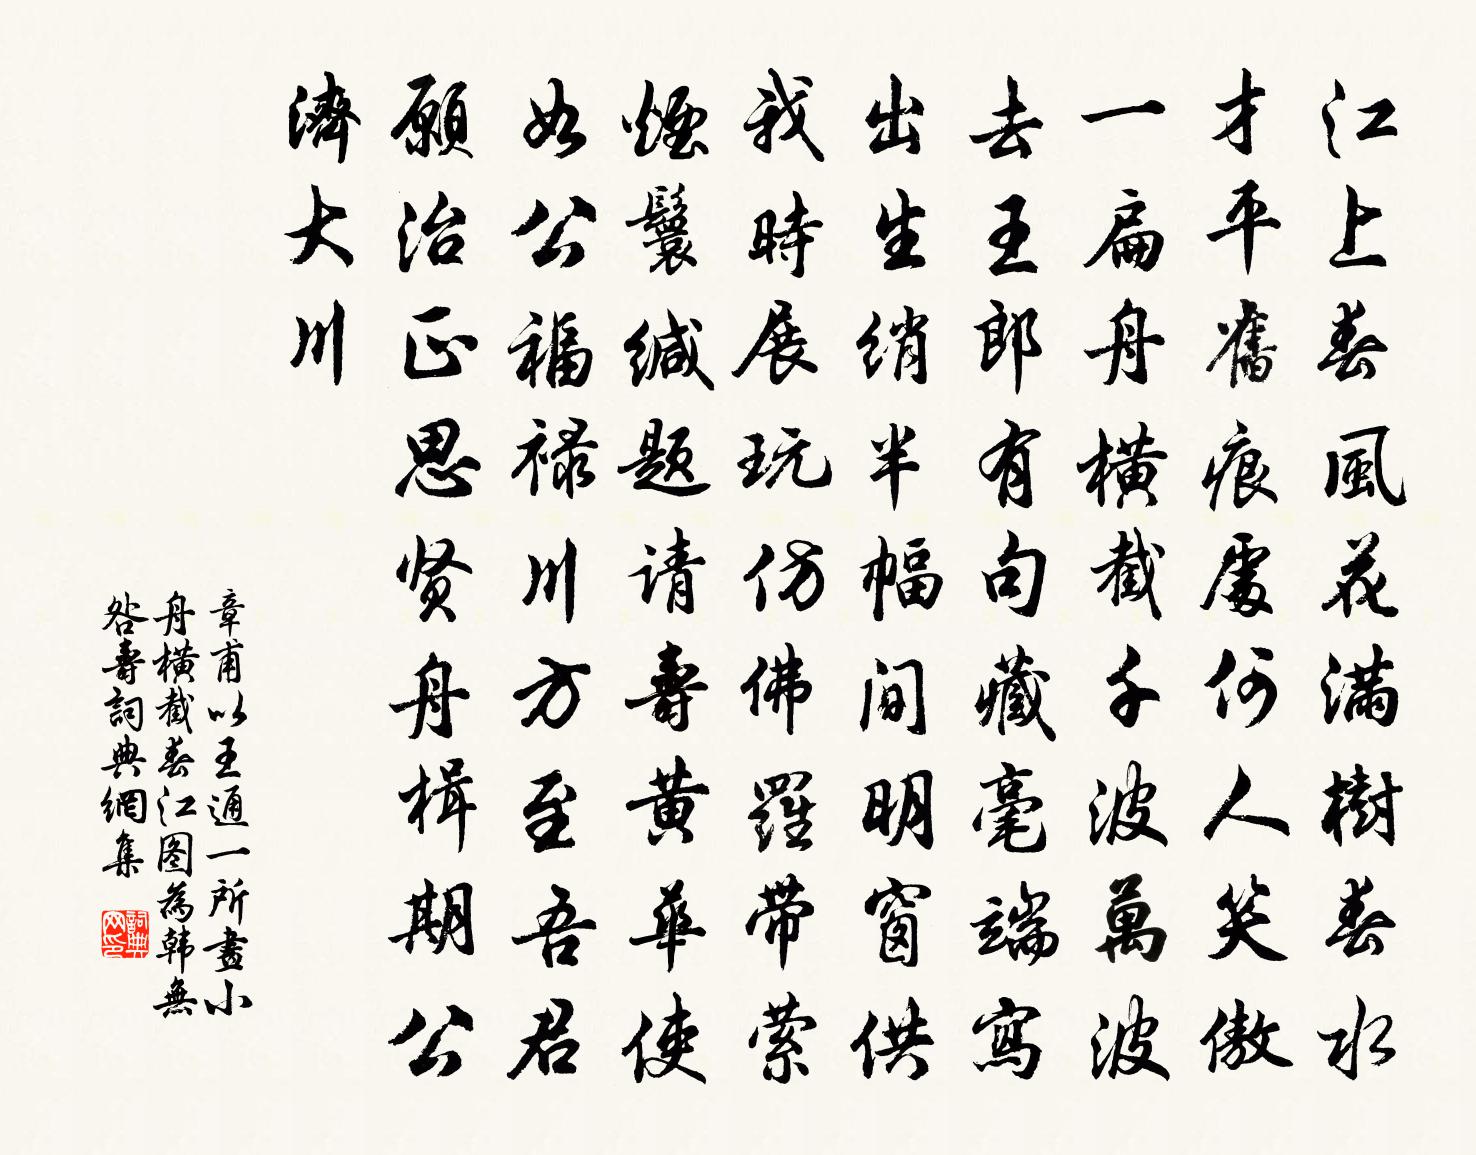 江上春風花滿樹春水
才平舊痕處何人笑傲
一扁舟橫截千波萬波
去王郎有句藏毫端寫
出生绡半幅間明窗供
我時展玩仿佛羅带萦
煙鬟缄题请壽黄華使
如公福禄川方至吾君
願治正思贤舟楫期公
濟大川
章甫以王通一所畫小
舟橫截春江图為韩無
咎壽詞典網集
詞典
网印